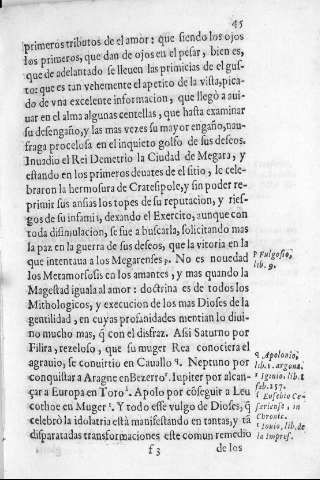 45
primeros tributos de el amor: que siendo los ojos
los primeros, que dan de ojos en el pesar, bien es,
que de adelantado se lleuen las primicias de el gus-
tor que es tan vehemente el apetito de la vista, pica-
do de vna excelente informacion, que llegò a aui-
uar en el alma algunas centellas, que hasta examinar
su desengaño, y las mas vezes su mayor engaño, nau-
fraga procelosa en el inquieto golfo de sus deseos.
Inuadio el Rei Demetrio la Ciudad de Megara, y
estando en los primeros deuates de el sitio, le cele-
braron la hermosura de Cratesipole, y sin poder re-
primir sus ansias los topes de su reputacion, y ries-
gos de su infamia, dexando el Exercito, aunque con
toda disimulacion, se fue a buscarla, solicitando mas
la paz en la guerra de sus deseos, que la vitoria en la
que intentaua a los Megarenses p. No es nouedad
los Metamorfosis en los amantes, y mas quando la
Magestad iguala al amor: doctrina es de todos los
Mithologicos, y execucion de los mas Dioses de la
gentilidad, en cuyas profanidades mentian lo diui-
no mucho mas, q̃ con el disfraz. Assi Saturno por
Filira, rezeloso, que su muger Rea conociera el
agrauio, se conuirtio en Cauallo q. Neptuno por
conquistar a Aragne en Bezerro r. Iupiter por alcan-
çar a Europa en Toro s. Apolo por cõseguir a Leu
cothoe en Muger t. Y todo esse vulgo de Dioses, q̃
celebrò la idolatria està manifestando en tantas, y tã
disparatadas transformaciones este comun remedio
f 3
de los
p Fulgosio,
lib. 9.
q Apolonio,
lib. 1. argona.
r Iginio, lib. 1
fab. 157.
s Eusebio Ce-
sariensis, in
Chronic.
t Iouio, lib. de
la Impres.